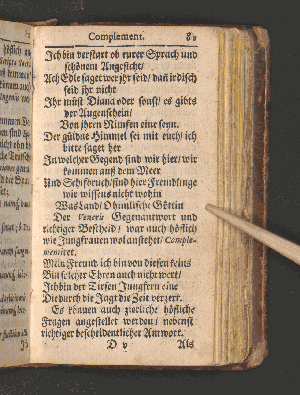 Complement. 81
Ich bin verstart ob eurer Sprach und
schönem Angesicht/
Ach Edle saget wer jhr seid/ dañ irdisch
seid jhr nicht
Ihr müst Diana oder sonst/ es gibts
der Augenschein/
Von jhren Nimfen eine seyn.
Der güldne Himmel sei mit euch/ ich
bitte saget her
In welcher Gegend sind wir hier/ wir
kommen auß dem Meer
Und Schifbruch/ sind hier Fremdlinge
wir wissens nicht wohin
Was Land/ O himlische Göttin
Der Veneris Gegenantwort und
richtiger Bescheid/ war auch höflich
wie Jungfrauen wol anstehet/ Comple-
mentiret.
Mein Freund ich bin von diesen keins
Bin solcher Ehren auch nicht wert/
Ich bin der Tirsen Jungfern eine
Die durch die Jagt die Zeit verzert.
Es können auch zierliche höfliche
Fragen angestellet werden/ nebenst
richtiger bescheidentlicher Antwort.
D v Als